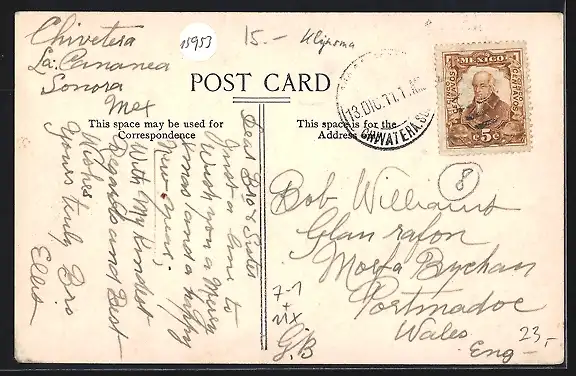 Chivetera
La: Cananea
Sonora
Mex
15953
15.-
POST CARD
This space may be used for
Correspondence
This space is for the
Address only
13.DIC.11.1
CHIVATERA.SON
MEXICO
5 CENTAVOS
5 CENTAVOS
5c
Dear Bro & Sister
Just a line to
Wish you a Merry
Xmas and a happy
New year,
With My Kindest
Regards and Best
Wishes
Yours truly Bro
Ellis
8
Bob Williams
Glan rafon
Morfa Bychan
Portmadoc
Wales
Eng -
G.B
7-1
23,-